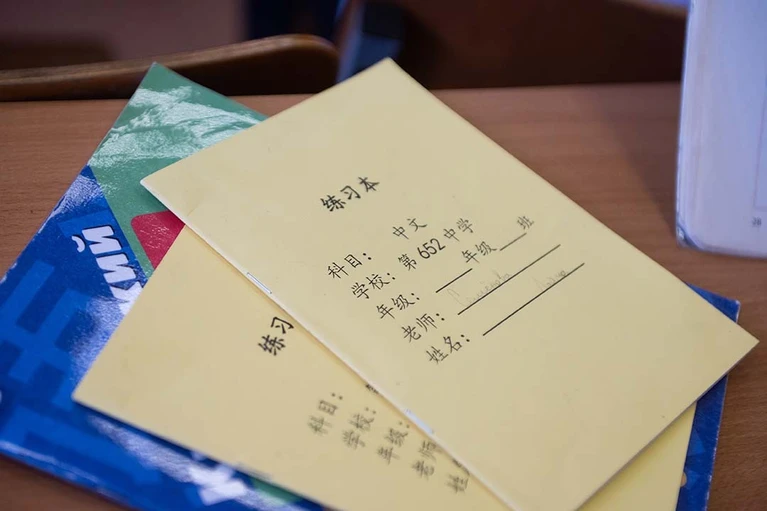 练习本
科目： 中文
学校： 第652中学
年级： 年级 班
老师：
姓名：
练习
科目：
学校：
年级：
老师
姓名
кий